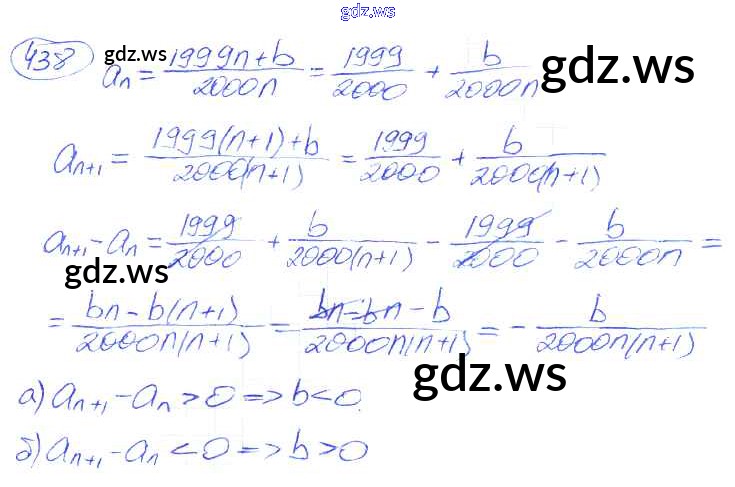 gdz.ws
438 gdz.ws
aₙ = (1999n+b)/(2000n) = 1999/2000 + b/(2000n) gdz.ws
aₙ₊₁ = (1999(n+1)+b)/(2000(n+1)) = 1999/2000 + b/(2000(n+1))
aₙ₊₁-aₙ = 1999/2000 + b/(2000(n+1)) - 1999/2000 - b/(2000n) =
gdz.ws
= (bn-b(n+1))/(2000n(n+1)) = (bn-bn-b)/(2000n(n+1)) = - b/(2000n(n+1))
gdz.ws
а) aₙ₊₁-aₙ>0 => b<0.
б) aₙ₊₁-aₙ<0 => b>0